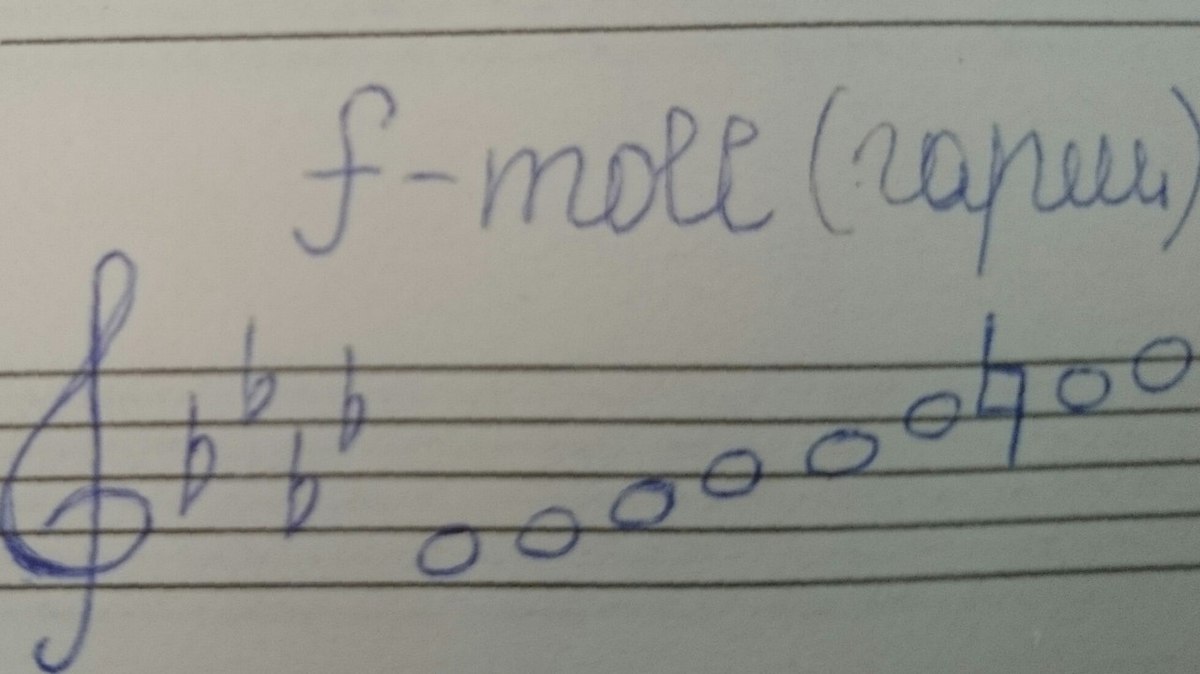 f-moll (гарм)